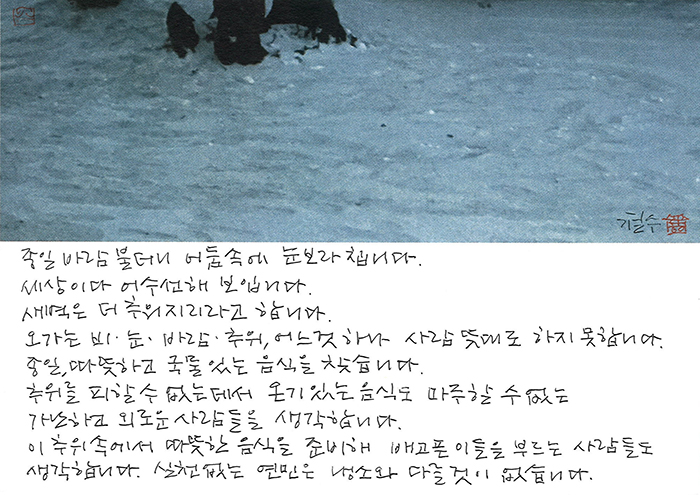 철수
종일 바람 불더니 어둠속에 눈보라 칩니다.
세상이 다 어수선해 보입니다.
새벽은 더 추워지리라고 합니다.
오가는 비·눈·바람·추위, 어느것 하나 사람 뜻대로 하지 못합니다.
종일, 따뜻하고 국물 있는 음식을 찾습니다.
추위를 피할 수 없는데서 온기있는 음식도 마주할 수 없는
가난하고 외로운 사람들을 생각합니다.
이 추위속에서 따뜻한 음식을 준비해 배고픈 이들을 부르는 사람들도
생각합니다. 실천 없는 연민은 냉소와 다를 것이 없습니다.